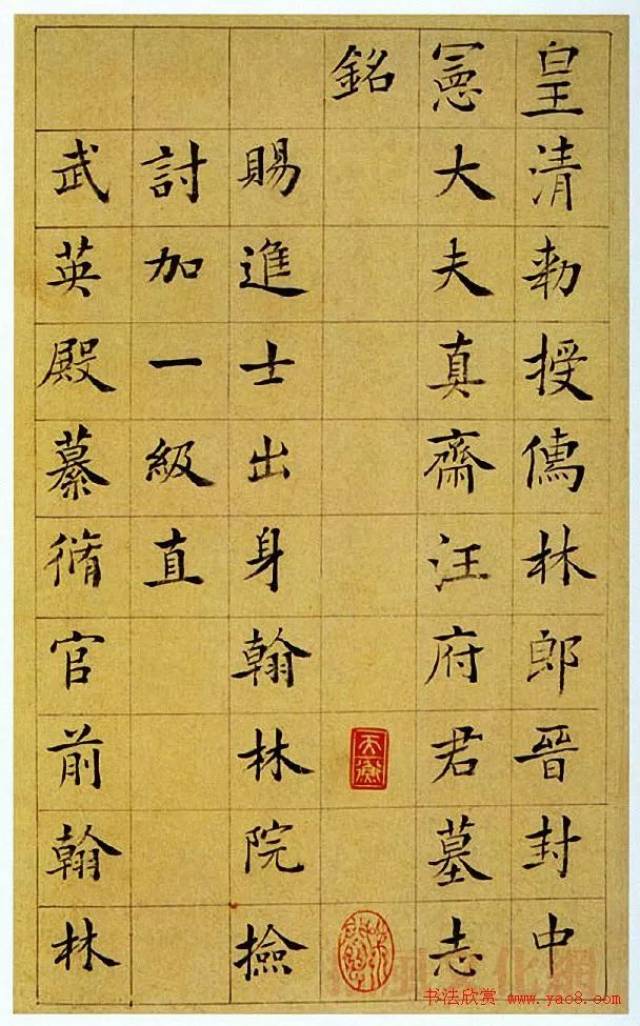 皇清勅授儒林郎晉封中
憲大夫真齋汪府君墓志
銘
賜進士出身翰林院撿
討加一級直
武英殿纂脩官前翰林
天衡
书法欣赏 www.yac8.com